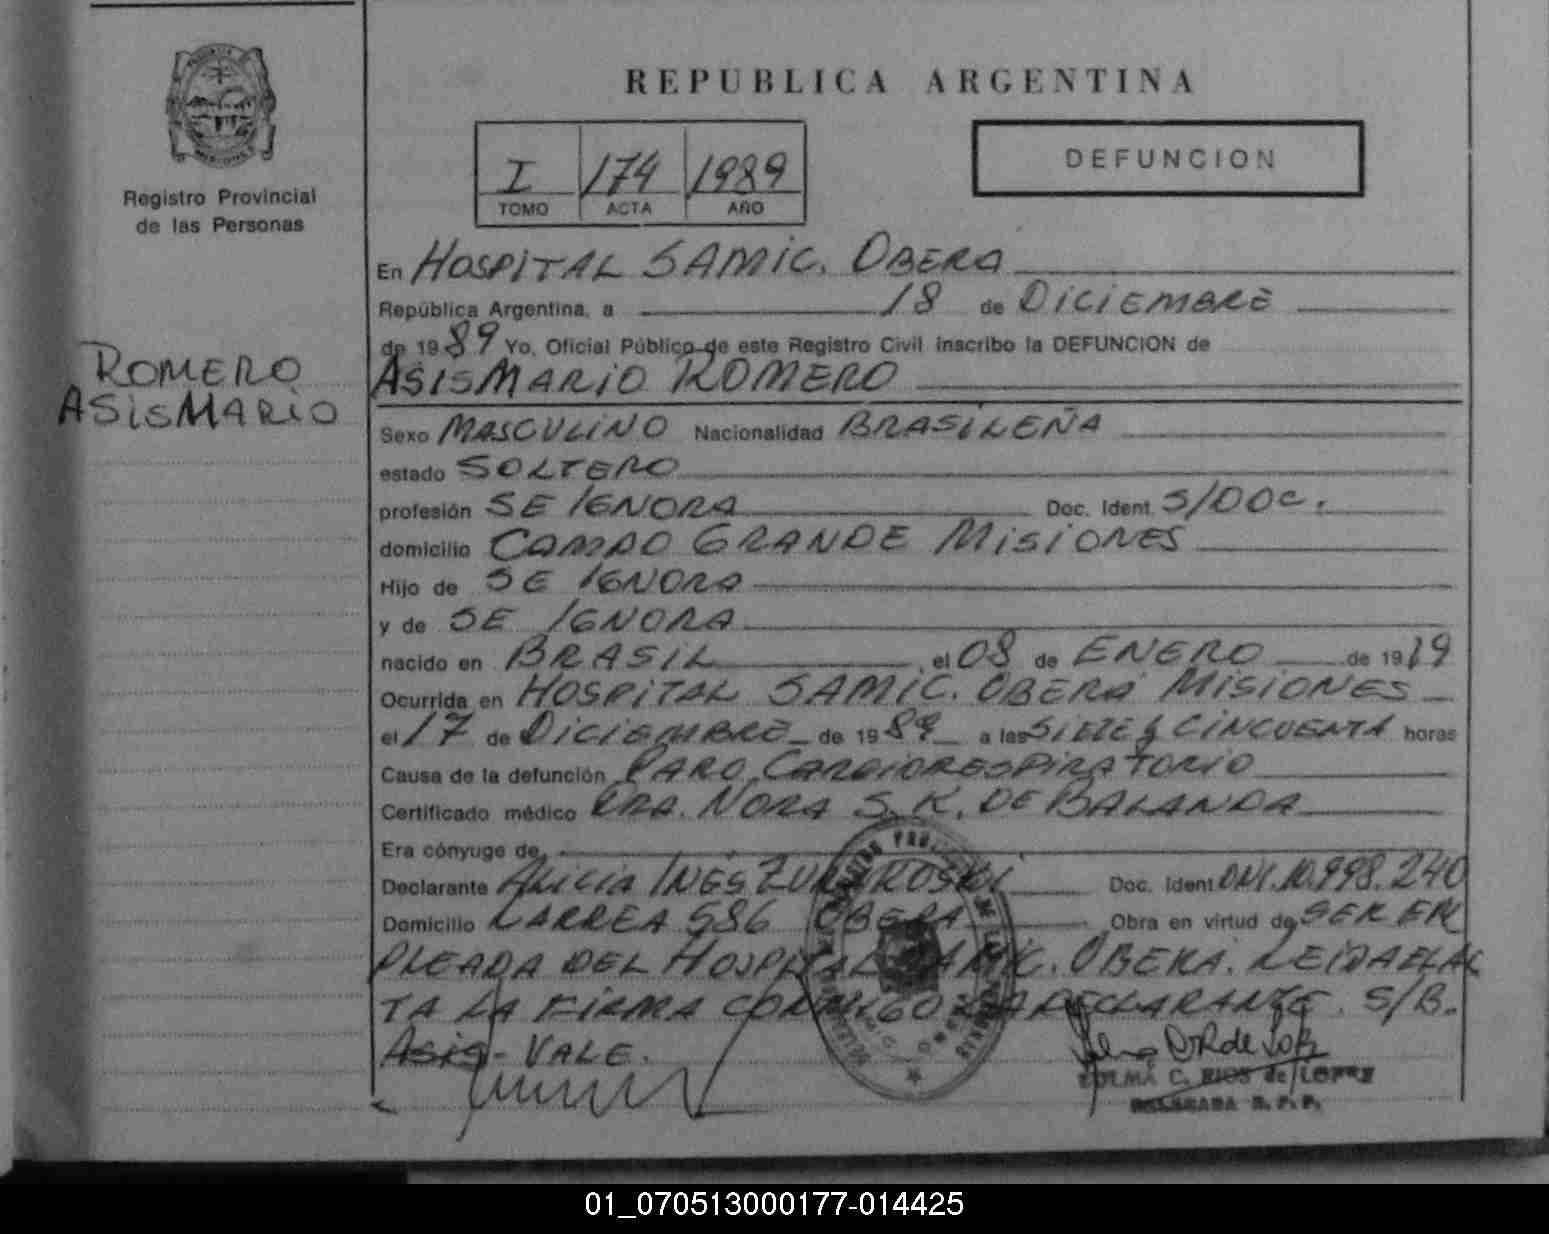 REPUBLICA ARGENTINA
Registro Provincial
de las Personas
I 174 1989
TOMO ACTA AÑO
DEFUNCION
ROMERO
ASisMARiO
En HOSPiTAL SAMiC. OBERA
República Argentina, a 18 de DiCiEMBRE
de 1989 Yo, Oficial Público de este Registro Civil inscribo la DEFUNCION de
ASiSMARiO ROMERO
Sexo MASCULiNO Nacionalidad BRASiLEÑA
estado SOLTERO
profesión SE IGNORA Doc. Ident. S/DOC.
domicilio CAMPO GRANDE MiSiONES
Hijo de SE IGNORA
y de SE IGNORA
nacido en BRASiL, el 08 de ENERO de 1919
Ocurrida en HOSPiTAL SAMiC. OBERA MiSiONES
el 17 de DiCiEMBRE de 1989 a las SiETE y CiNCUENTA horas
Causa de la defunción PARO CARDIORESPiRATORiO
Certificado médico DRA. NORA S. K. DE BALANDA
Era cónyuge de
Declarante ALiCiA INÉS Doc. Ident DNI. 10.998.240
Domicilio LARREA 586 OBERA Obra en virtud de SER EM
PLEADA DEL HOSPITAL SAMiC. OBERA. LEiDA EL AC
TA LA FiRMA CONMIGO LA DECLARANTE. S/B.
ASiS- VALE.
ZULMA C. RIOS de LOPEZ
DELEGADA R. P. P.
01_070513000177-014425